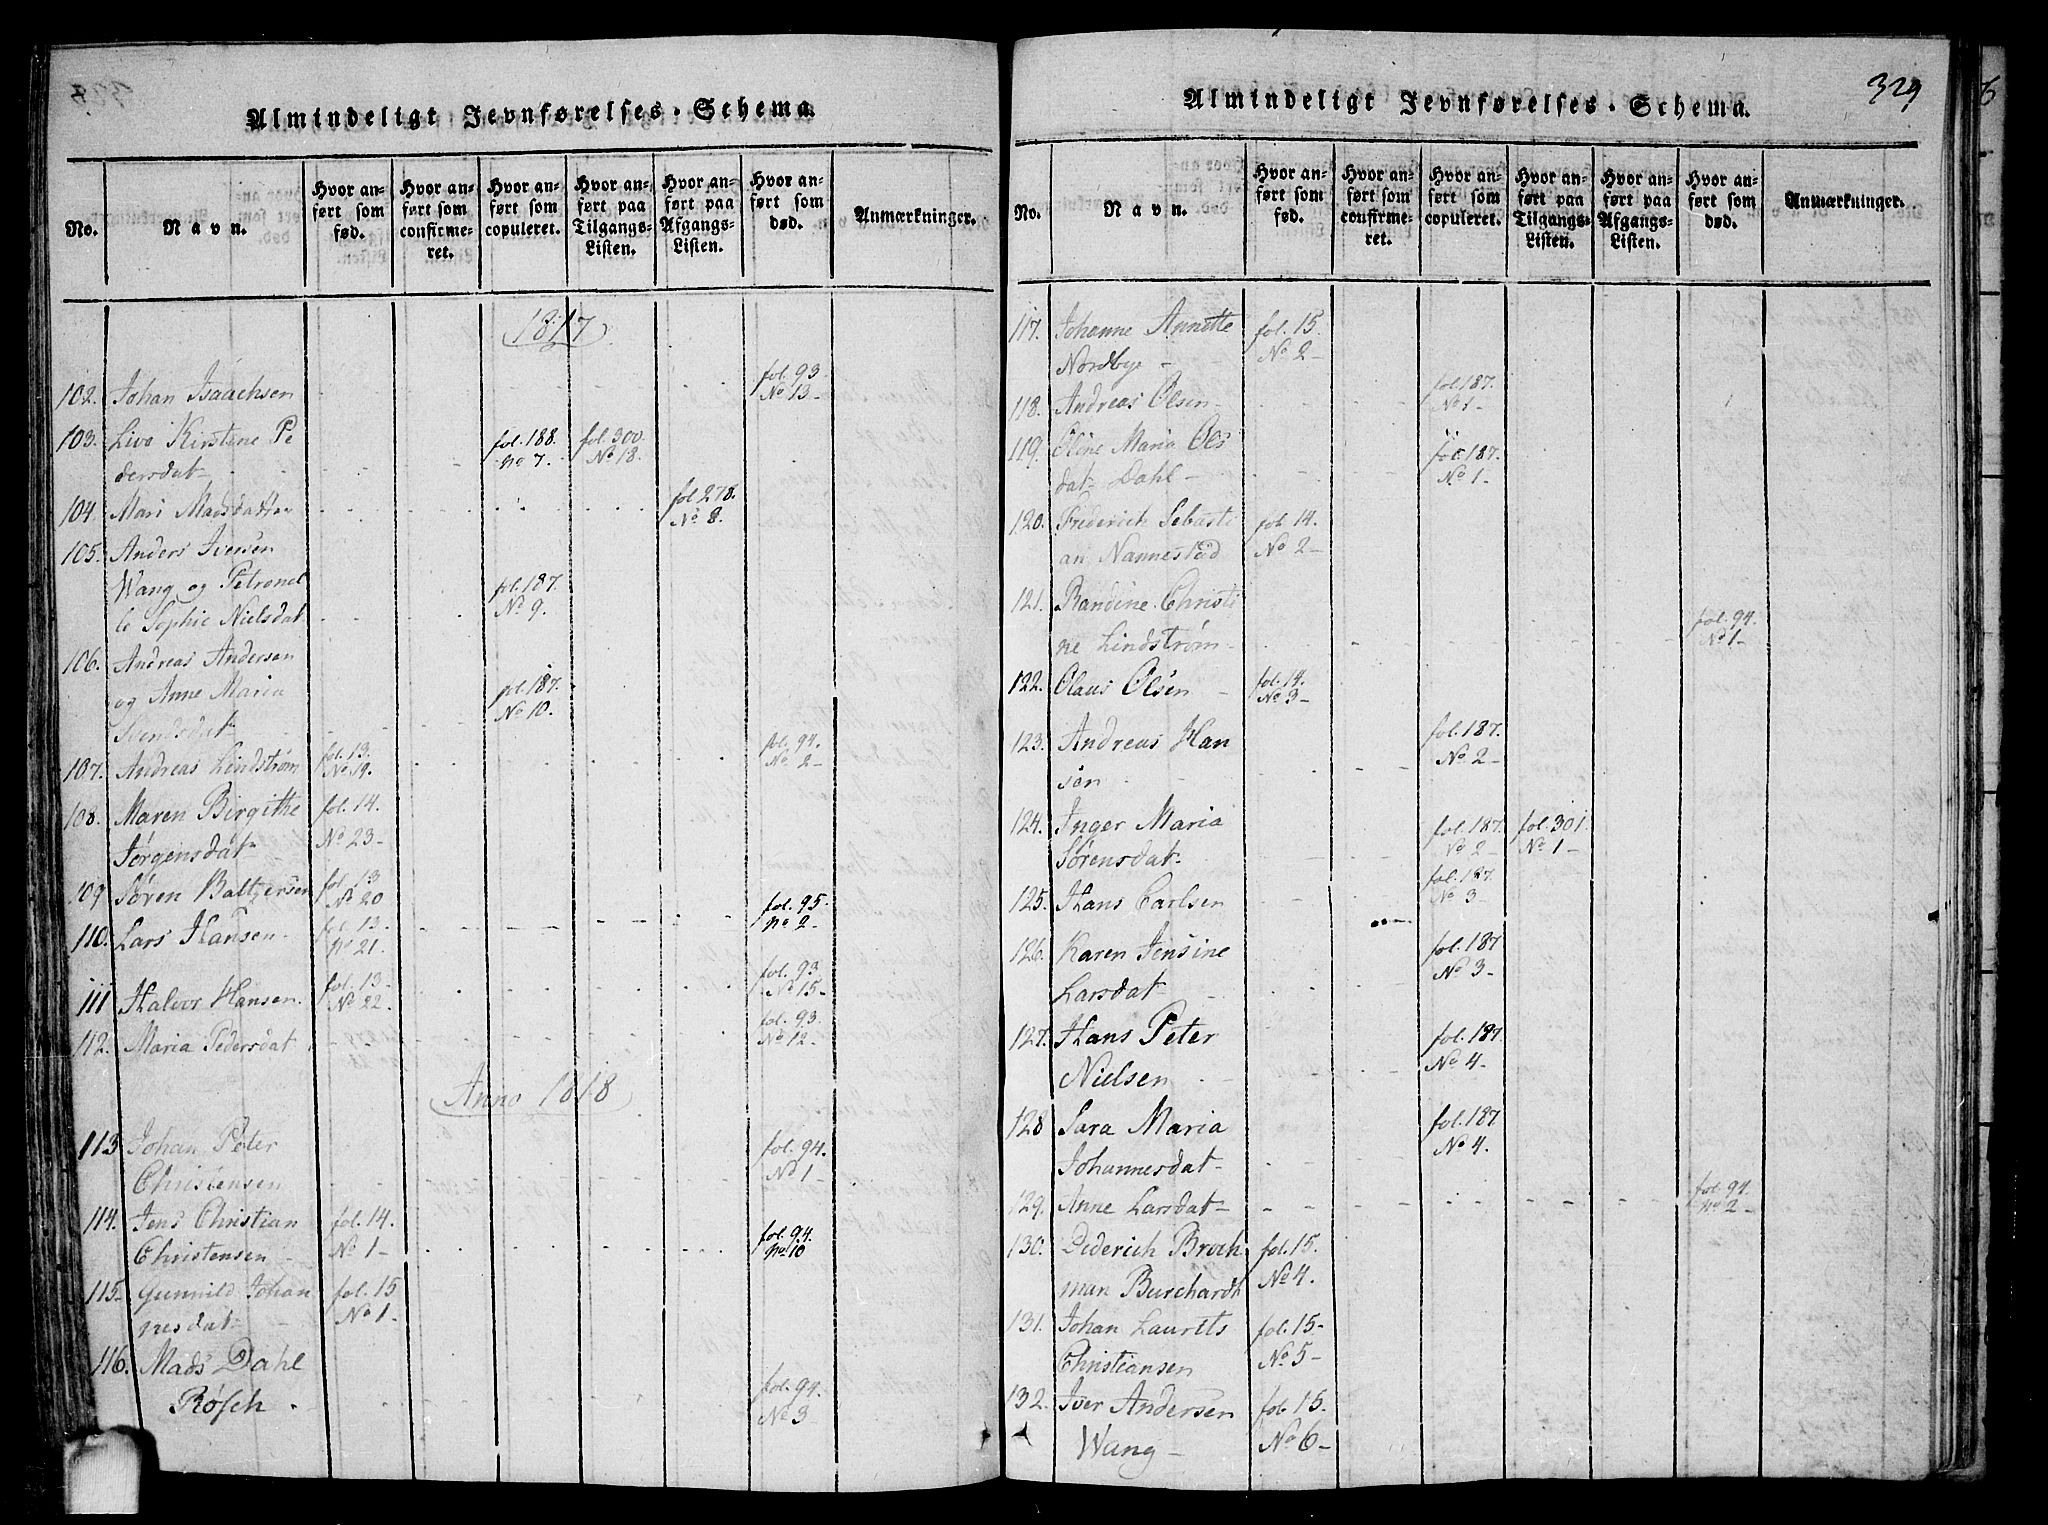 Almindeligt Jevnførelses-Schema.
No.
Navn.
Hvor an-
ført som
fød.
Hvor an-
ført som
confirme-
ret.
Hvor an-
ført som
copuleret.
Hvor an-
ført paa
Tilgangs-
Listen.
Hvor an-
ført paa
Afgangs-
Listen.
Hvor an-
ført som
død.
Anmærkninger.
1817
102. Johan Isaachsen fol. 93. No 13-
103. Live Kirstine Pe fol. 188. No 7. fol. 300. No 18.
dersdat-
104. Mari Madsdatter fol 278. No 8.
105. Anders Iversen
Wang og Petronel fol. 187. No 9.
le Sophie Nielsdat
106. Andreas Andersen
og Anne Maria fol. 187. No 10.
107. Andreas Lindstrøm fol. 13. No 19. fol. 94. No 2-
108. Maren Birgithe fol. 14. No 23-
Jørgensdat-
109 Søren Baltzersen fol. 13 No 20
110. Lars Hansen. fol. 13. No 21. fol. 95. No 2-
111 Halvor Hansen. fol. 13- No 22. fol. 93 No 15-
112. Maria Pedersdat fol. 93. No 12-
Anno 1818
113 Johan Peter fol. 94. No 1-
Christensen
114. Jens Christian fol. 14. No 1- fol. 94. No 10
Christensen-
115- Gunnild Johan fol. 15 No 1-
nesdat-
116. Mads Dahl fol. 94. No 3-
Røsch
329
Almindeligt Jevnførelses-Schema.
No.
Navn.
Hvor an-
ført som
fød.
Hvor an-
ført som
confirme-
ret.
Hvor an-
ført som
copuleret.
Hvor an-
ført paa
Tilgangs-
Listen.
Hvor an-
ført paa
Afgangs-
Listen.
Hvor an-
ført som
død.
Anmærkninger.
117. Johanne Annette fol. 15. No 2-
Nordbye-
118. Andreas Olsen- fol. 187. No 1-
119. Oline Maria Ols fol. 187. No 1-
dat- Dahl-
120. Friderich Sebasti fol. 14. No 2-
an Nannestad
121. Randine Christi fol. 94. No 1-
ne Lindstrøm-
122. Olaus Olsen- fol. 14. No 3-
123. Andreas Han fol. 187. No 2-
sen
124. Inger Maria fol. 187. No 2- fol. 301. No 1-
Sørensdat-
125. Hans Carlsen fol. 187. No 3
126. Karen Jensine fol. 187 No 3-
Larsdat-
127. Hans Peter fol. 187. No 4.
Nielsen
128 Sara Maria fol. 187 No 4.
Johannesdat-
129. Anne Larsdat- fol. 94. No 2-
130. Diderich Broch fol. 15. No 4.
man Burchardt
131. Johan Laurits fol. 15- No 5-
Christiansen
132. Iver Andersen fol. 15. No 6-
Wang-